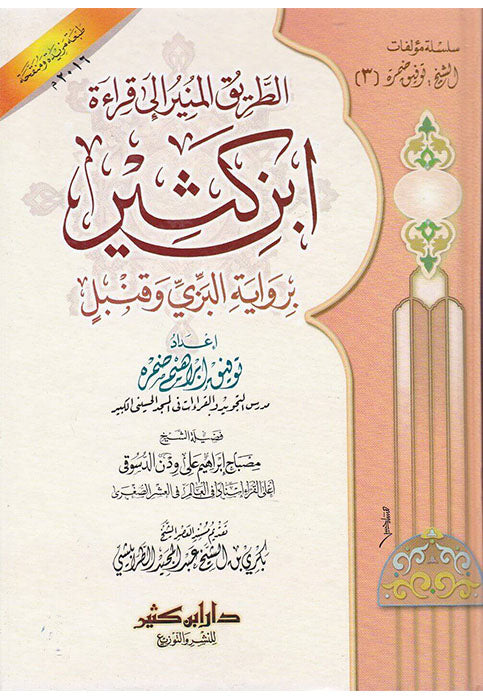 سلسلة مؤلفات
الشيخ توفيق ضمرة (٣)
طبعة مزيدة ومنقحة
٢٠١٦م
الطَّرِيقُ المُنِيرُ إِلَى قِرَاءَةِ
ابن كثير
بِرِوَايَةِ البَزِّي وَقُنْبُل
إعداد
توفيق إبراهيم ضمرة
مدرس التجويد والقراءات في المسجد الحسيني الكبير
فضيلة الشيخ
مصباح إبراهيم علي ودن الدسوقي
أعلى القراء إسناداً في العالم في العشر الصغرى
تقديم مسند العصر الشيخ
بكري بن الشيخ عبد المجيد الطرابيشي
دار ابن كثير
للنشر والتوزيع